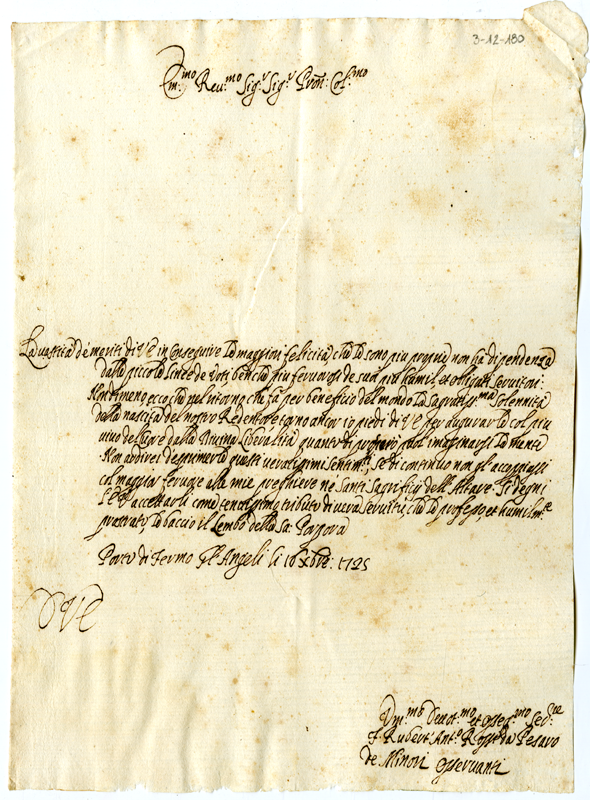 3-12-180
Em:mo Reu:mo Sig:r Sig:r Pron: Col:mo
La uastità de meriti di VE in Conseguire le maggiori felicità, che le sono piu proprie non hà dipendenza
dalle piccole linee de Voti benche piu feruorosi de suoi più humili, et obligati seruitori.
Nondimeno ecco che nel ritorno che fà per beneficio del mondo la sagratis:ma solennità
della nascita del nostro Redentore torno ancor io piedi di VE per augurarle col piu
uiuo del core dalla Diuina Liberalità quanto di può imaginarsi la mente
Non ardirei d'esprimerle questi uerissimi sentim:ti se di continuo non gl'accoppiassi
col maggior feruore alle mie preghiere ne Santi Sagrifici dell'Altare. Si degni
l'E V accettarli come tenuissimo tributo di uera seruitù, che le professo, et humilm:te
prostrato le bacio il Lembo della Sa: Porpora
Porto di Fermo Gl'Angeli li 16 Xbre: 1725
DVE
Um:mo Deuot:mo et osseq:mo Ser:re
F. Rubert' Ant:o Rossi da Pesaro
de Minori osseruanti